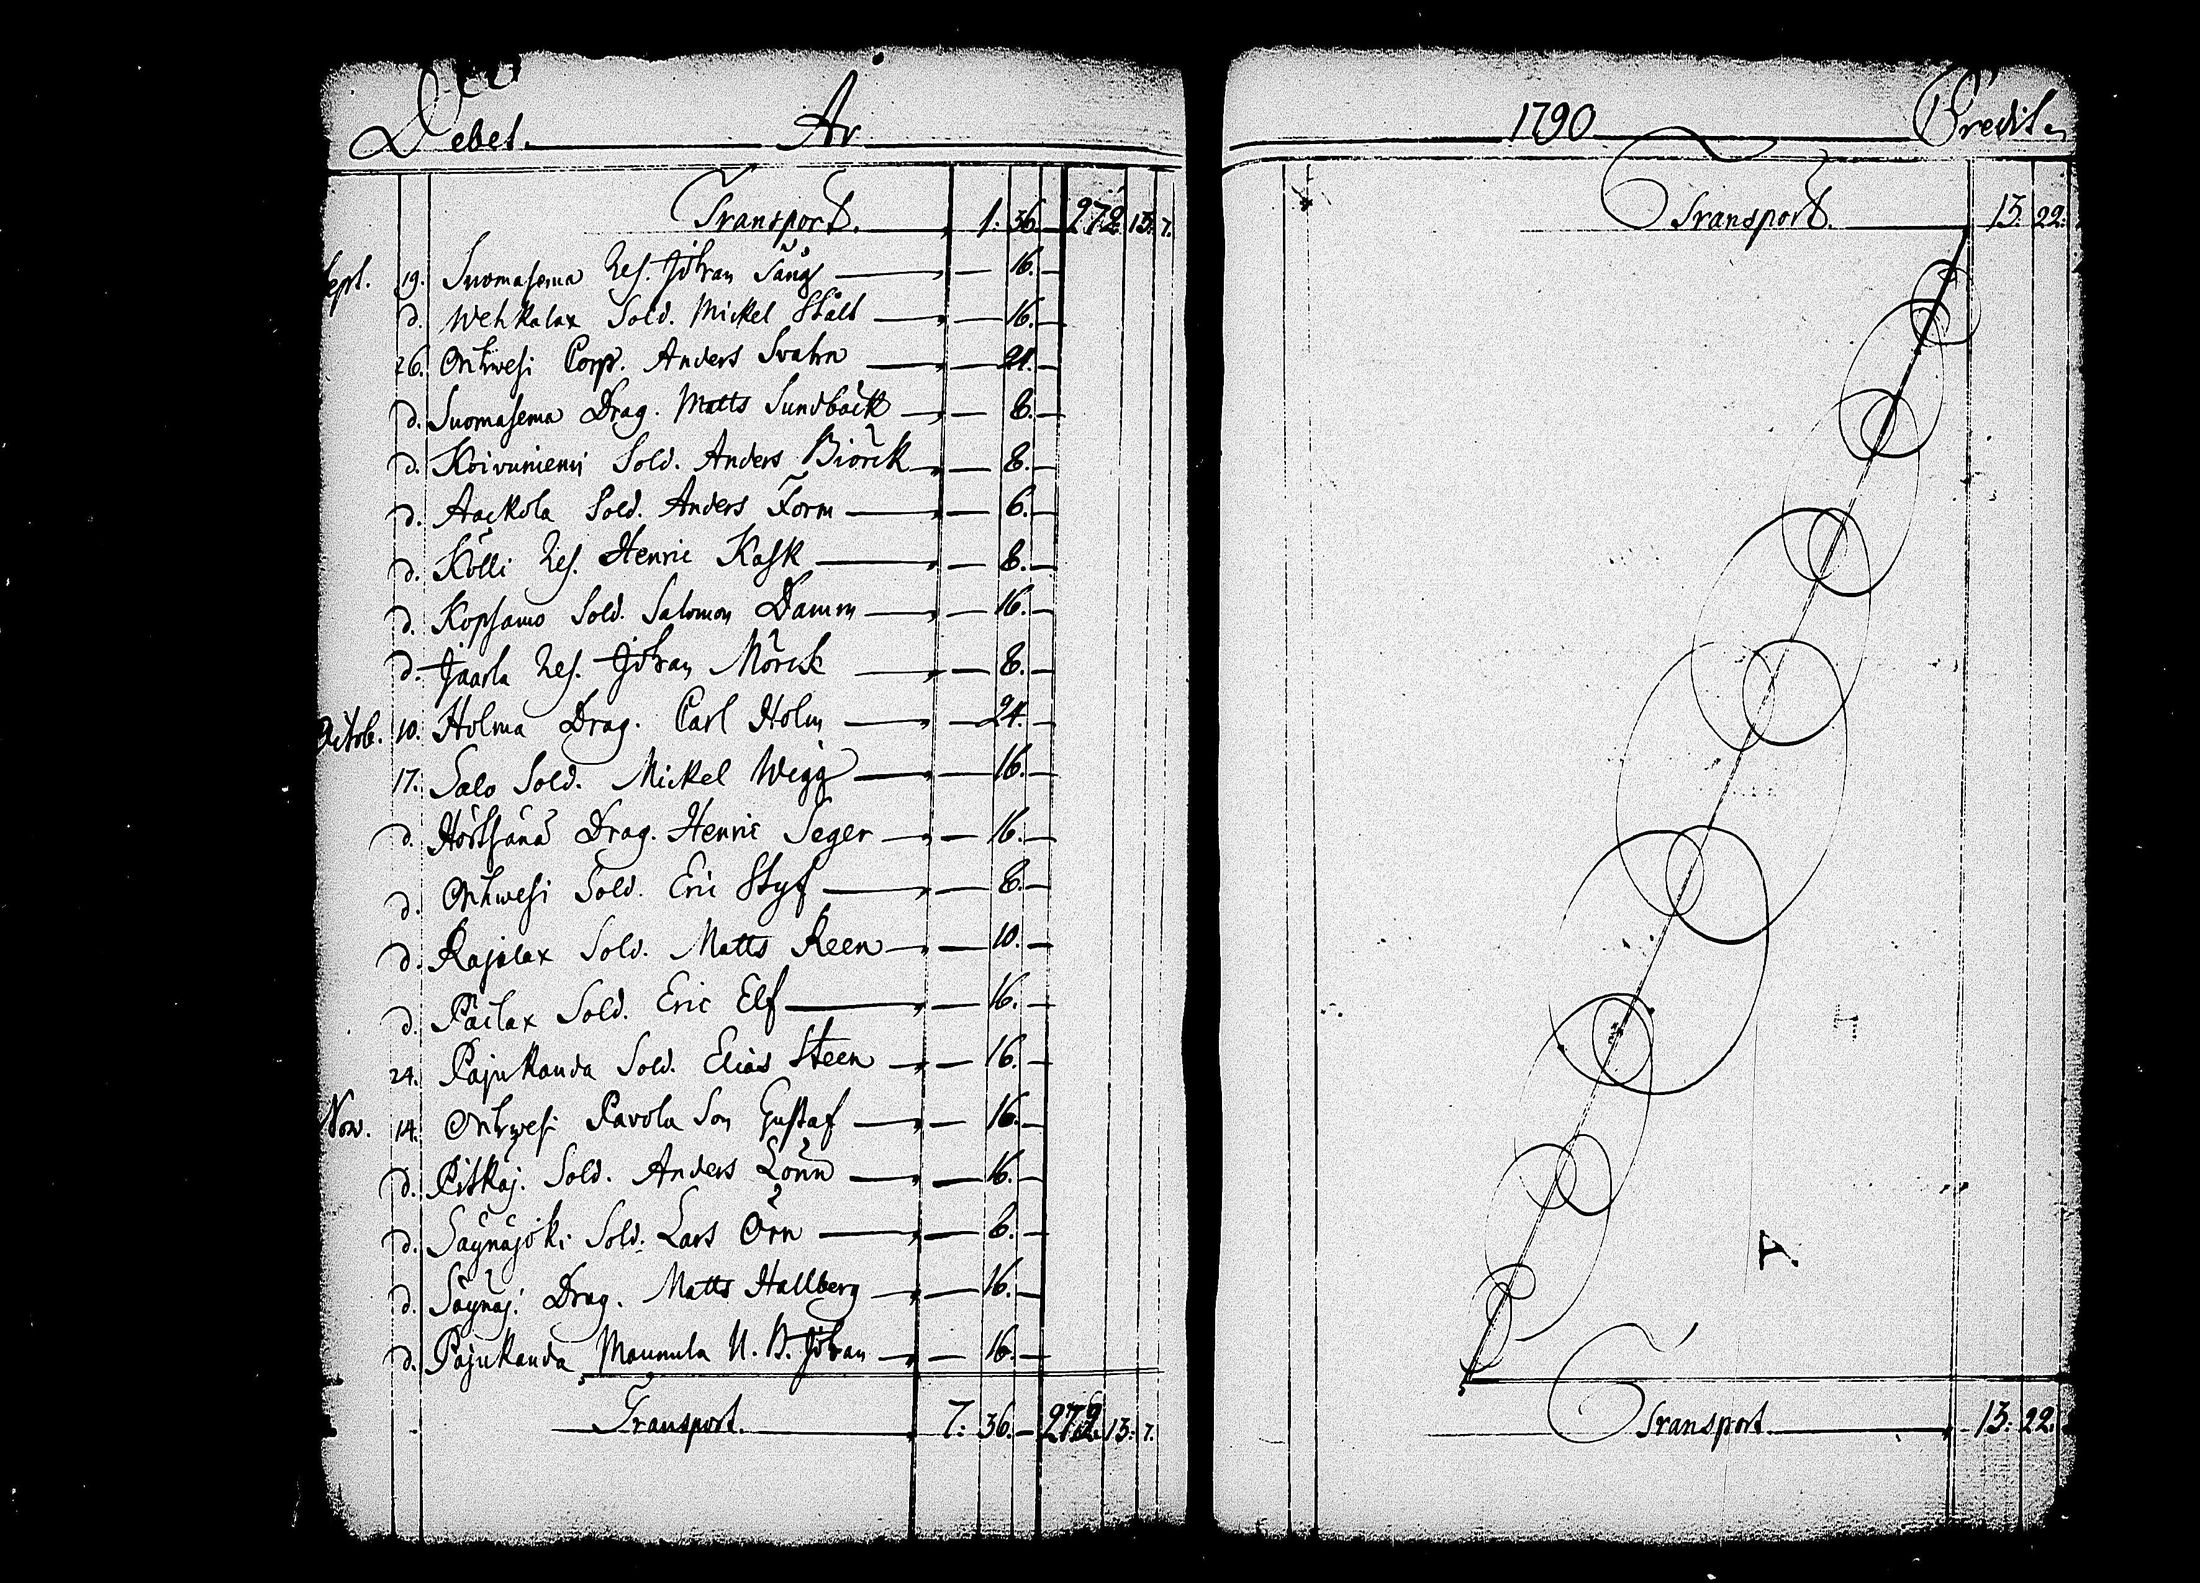 Debet. År
Transport. 1: 36. 272: 13: 7.
Sept. 19. Suomasema Res. Johan Sång — 16. —
d. Wehkalax Sold. Mickel Stålt — 16. —
26. Onkwesi Corp. Anders Svahn — 24. —
d. Suomasema Drag. Matts Sundbäck — 8. —
d. Koivuniemi Sold. Anders Biörck — 8. —
d. Aackola Sold. Anders Form — 6. —
d. Kölli Res. Henric Kask — 8. —
d. Kopsamo Sold. Salomon Damm — 16. —
d. Jaarla Res. Johan Mörck — 8. —
Octob. 10. Holma Drag. Carl Holm — 24. —
17. Salo Sold. Mickel Wigg — 16. —
d. Hörtsänä Drag. Henric Seger — 16. —
d. Onkwesi Sold. Eric Styf — 8. —
d. Rajalax Sold. Matts Reen — 10. —
d. Paclax Sold. Eric Elf — 16. —
24. Pajukanda Sold. Elias Steen — 16. —
Nov. 14. Onkwesi Pavola Son Gustaf — 16. —
d. Pitkäj. Sold. Anders Lönn — 16. —
d. Säynäjoki Sold. Lars Örn — 8. —
d. Säynäj. Drag. Matts Hallberg — 16. —
d. Pajukanda Maunula N. B. Johan — 16. —
Transport. 7: 36. — 272: 13: 7.
1790 Credit.
Transport. 13: 22:
Transport. 13: 22: